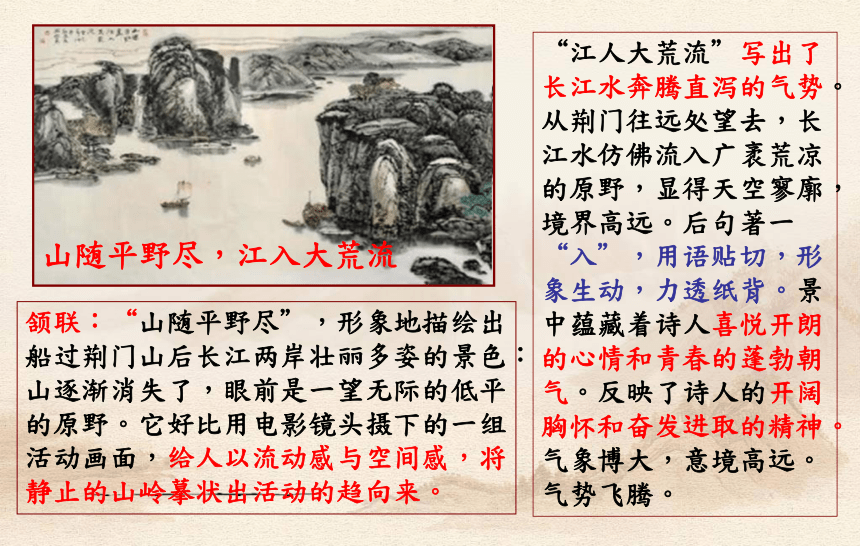 山随平野尽，江入大荒流
颔联：“山随平野尽”，形象地描绘出
船过荆门山后长江两岸壮丽多姿的景色：
山逐渐消失了，眼前是一望无际的低平
的原野。它好比用电影镜头摄下的一组
活动画面，给人以流动感与空间感，将
静止的山岭摹状出活动的趋向来。
“江人大荒流”写出了
长江水奔腾直泻的气势。
从荆门往远处望去，长
江水仿佛流入广袤荒凉
的原野，显得天空寥廓，
境界高远。后句著一
“入”，用语贴切，形
象生动，力透纸背。景
中蕴藏着诗人喜悦开朗
的心情和青春的蓬勃朝
气。反映了诗人的开阔
胸怀和奋发进取的精神。
气象博大，意境高远。
气势飞腾。